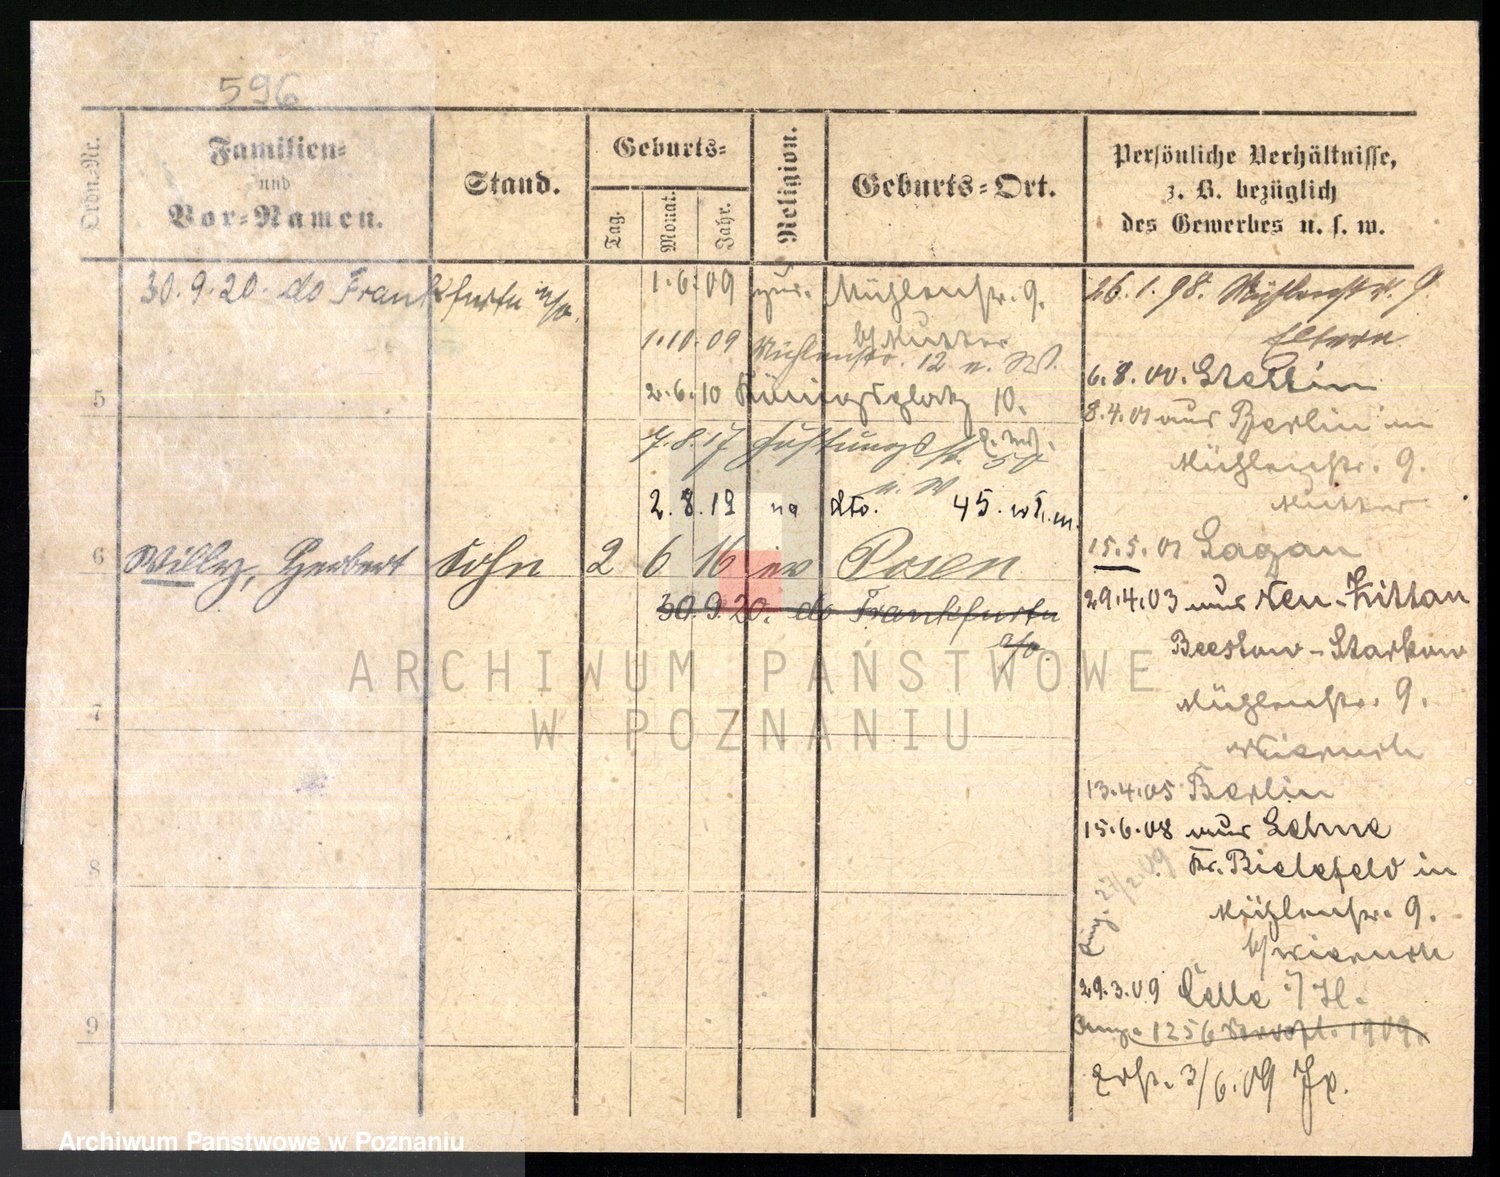 596
Ordn.-Nr.
Familien-
und
Vor-Namen.
Stand.
Geburts-
Tag.
Monat.
Jahr.
Religion.
Geburts-Ort.
Persönliche Verhältnisse,
z. B. bezüglich
des Gewerbes u. s. w.
30.9.20. do Frankfurta a/o.
1.6.09 zur. Mühlenstr. 9.
b/Mutter
1.10.09 Mühlenstr. 12 n. W.
2.6.10 Königsplatz 10.
7.8.17 Festungsstr. 50
n. W
2.8.19 na dto. 45.
5
6 Willy, Herbert Sohn 2 6 16 ev Posen
30.9.20. do Frankfurtu
a/o.
7
8
9
26.1.98. Mühlenstr. 9.
Eltern
6.8.00. Stettin
8.4.01 aus Berlin in
Mühlenstr. 9.
Mutter
15.5.01 Sagan
29.4.03 aus Neu-Zittau
Beeskow-Storkow
Mühlenstr. 9.
13.4.05 Berlin
15.6.08 aus Sehne
Kr. Bielefeld in
Mühlenstr. 9.
27/2.09
29.3.09 Celle i/H.
1256 1909.
3/6.09
ARCHIWUM PAŃSTWOWE
W POZNANIU
Archiwum Państwowe w Poznaniu